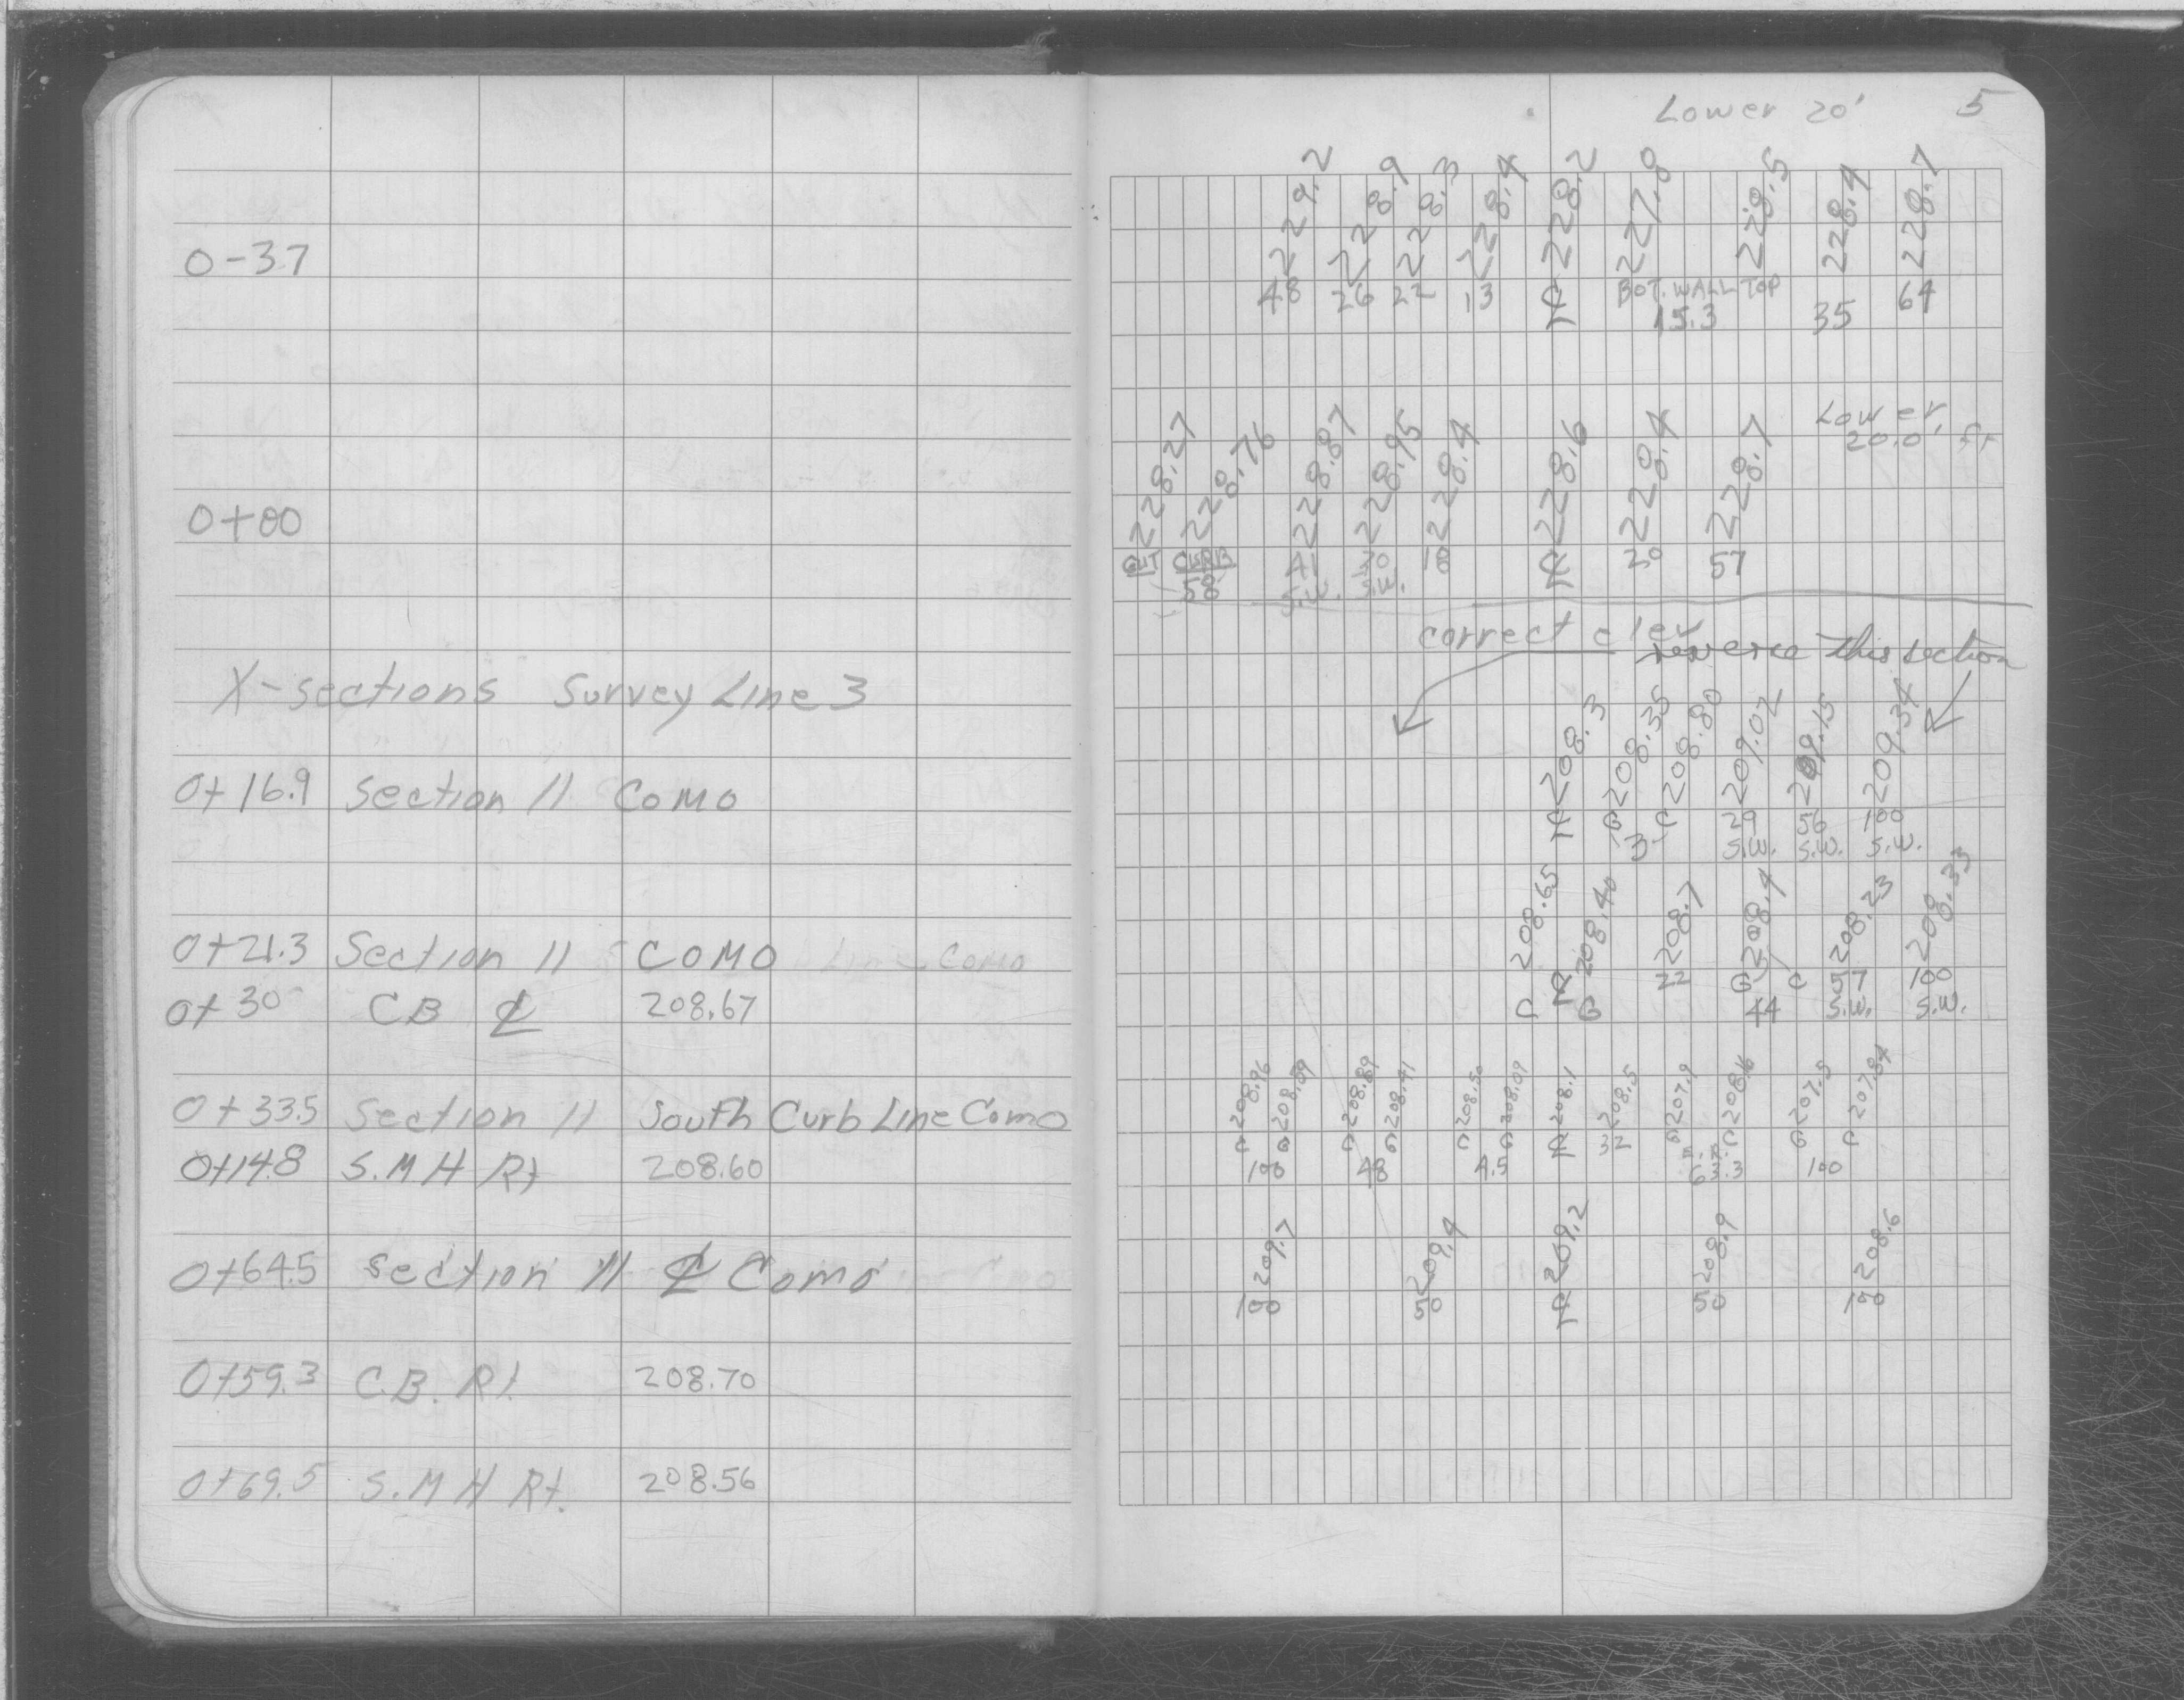 0-37
0+00
X-sections Survey Line 3
0+16.9 Section 11 Como
0+21.3 Section 11 COMO Line Como
0+30 CB ℄ 208.67
0+33.5 Section 11 South Curb Line Como
0+14.8 S.M H Rt 208.60
0+64.5 section 11 ℄ Como
0+59.3 C.B. Rt. 208.70
0+69.5 S.M H Rt. 208.56
Lower 20' 5
229.2 228.9 228.3 228.4 228.2 227.8 229.5 228.4 228.7
48 26 22 13 ℄ BOT. WALL TOP 64
15.3 35
Lower
20.0' Ft
228.27 228.76 228.87 228.95 228.4 228.6 228.4 228.7
GUT CURB 41 30 18 ℄ 20 57
58 S.W. S.W.
correct elev
reverse This section
208.3 208.35 208.80 209.02 209.15 209.34
℄ G C 29 56 100
3 S.W. S.W. S.W.
208.65 208.40 208.7 208.4 208.23 208.33
℄ 22 G C 57 100
C G 44 S.W. S.W.
208.96 208.59 208.89 208.41 208.50 208.09 208.1 208.5 207.9 208.16 207.5 207.84
C G C G C G ℄ 32 G C G C
100 48 4.5 63.3 100
209.7 209.4 209.2 208.9 208.6
100 50 ℄ 50 100